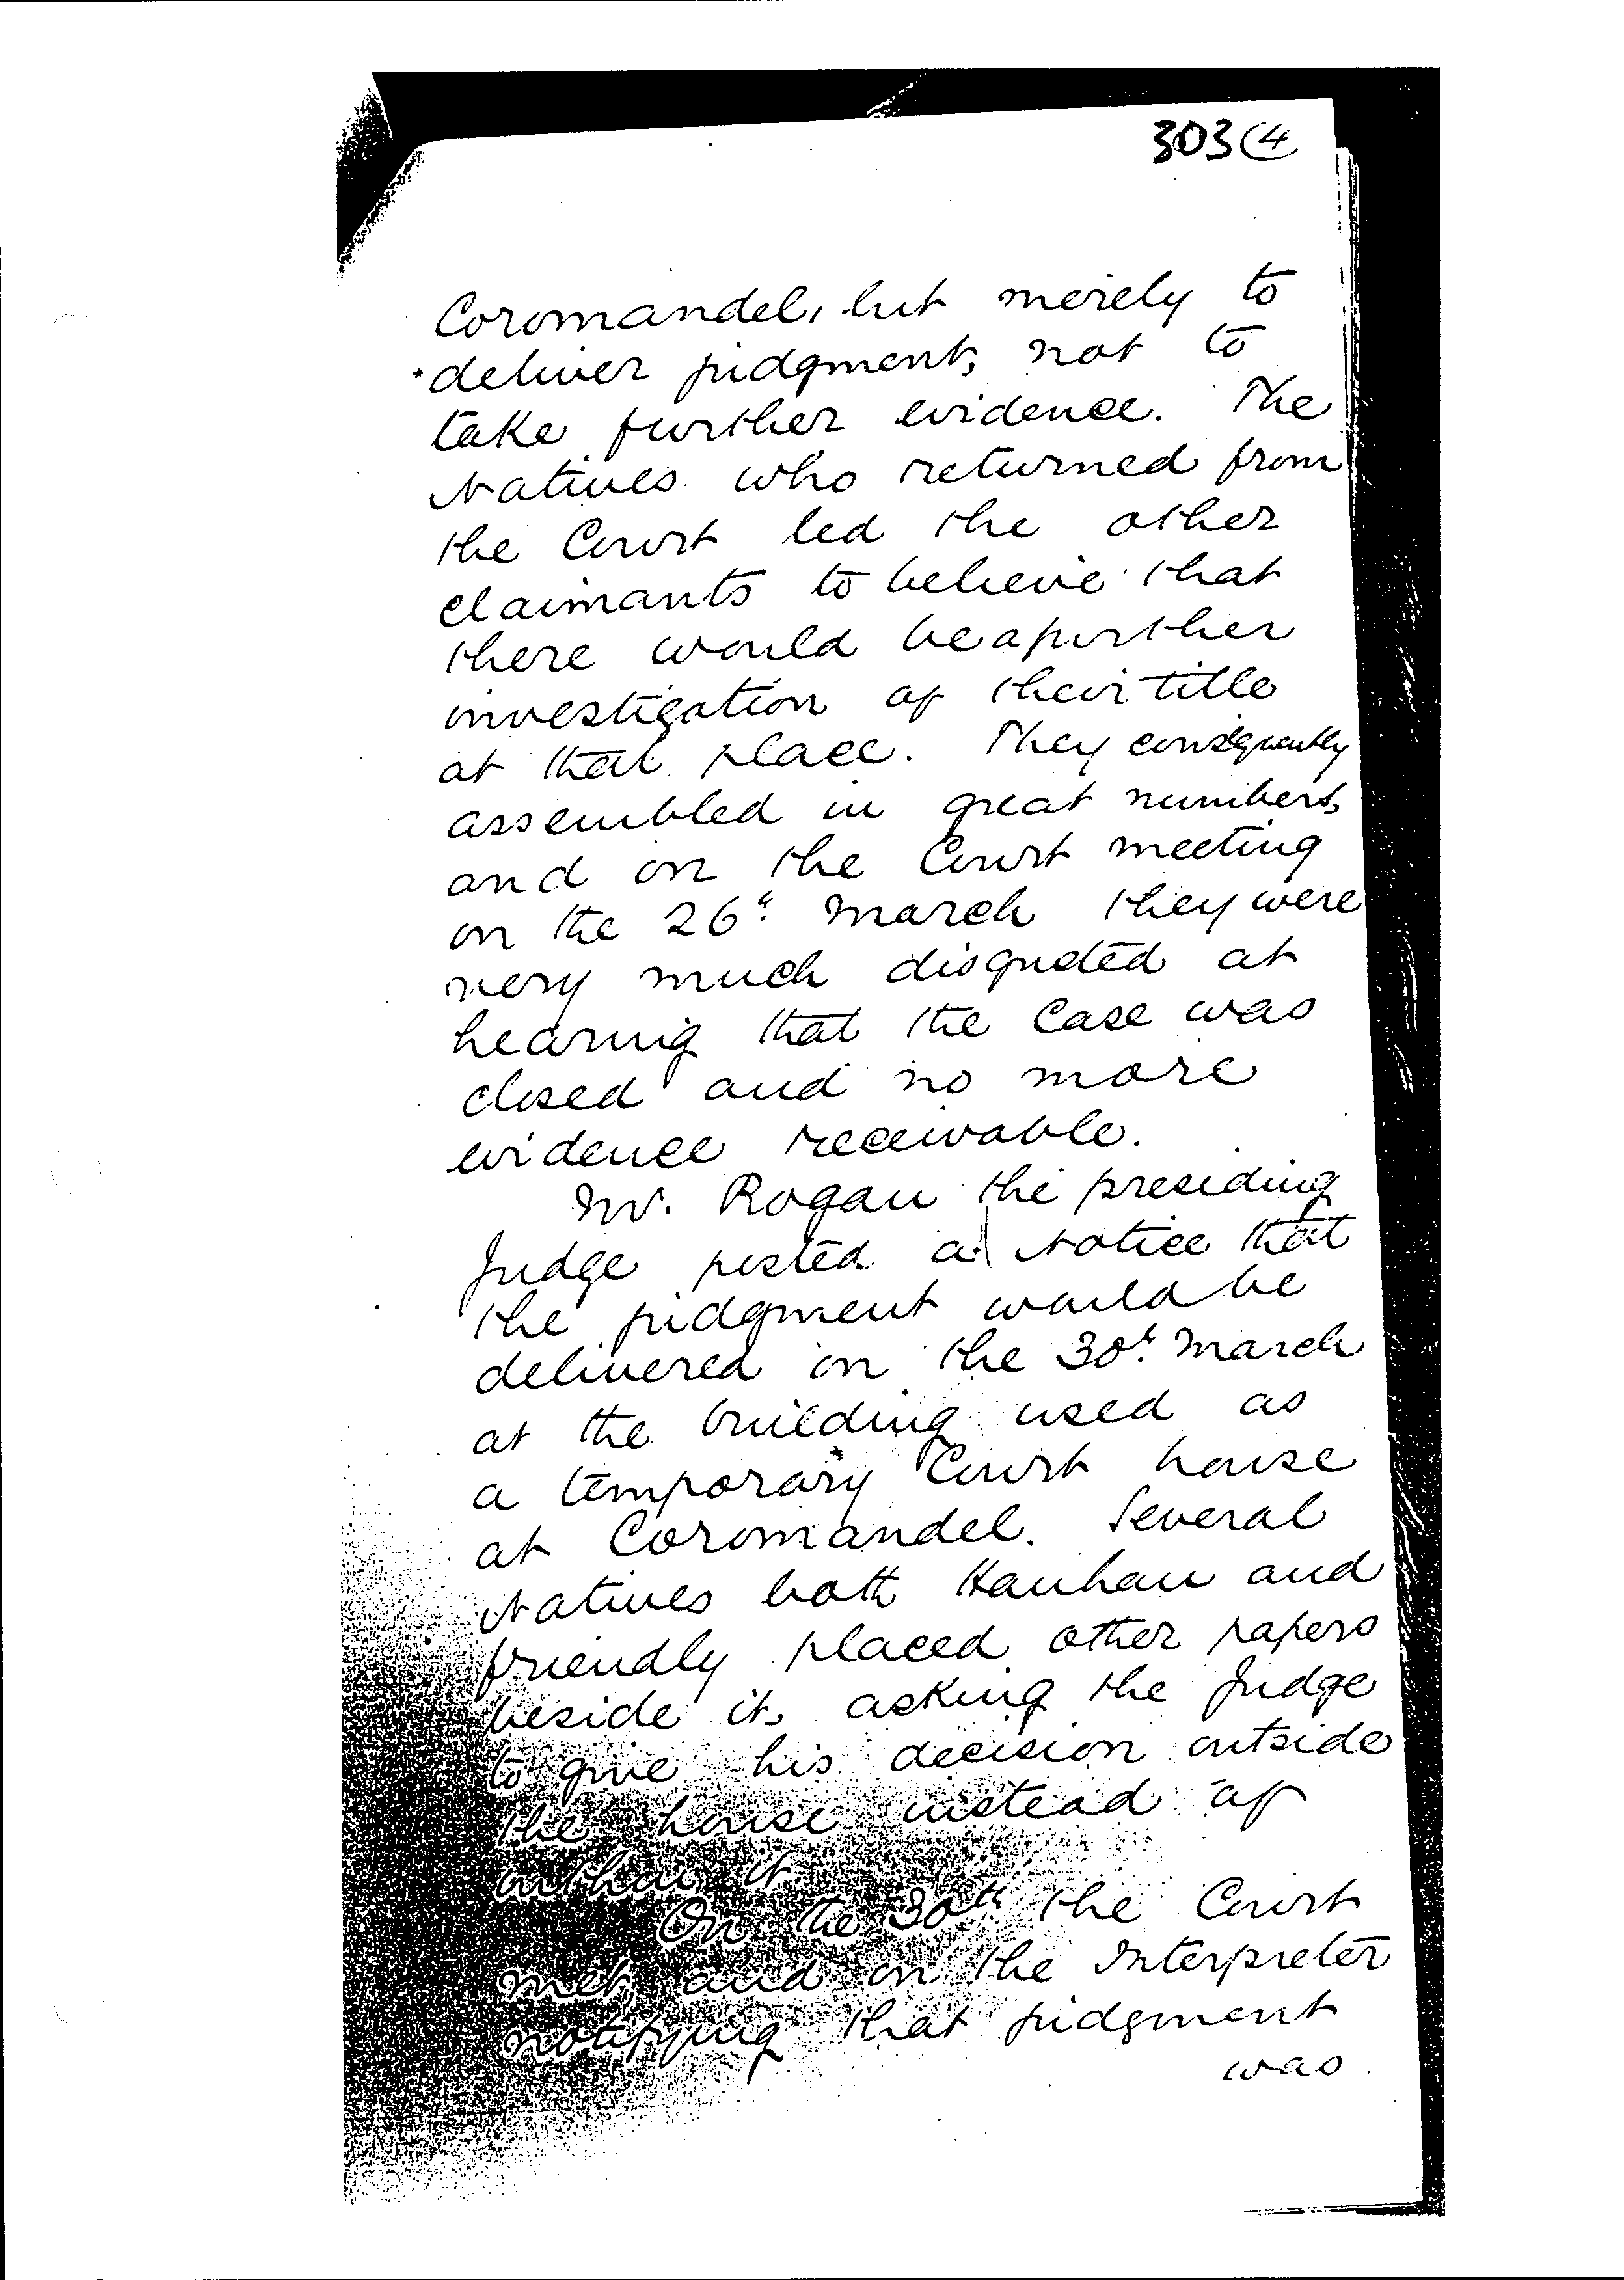 303(4
Coromandel, but merely to
deliver judgment, not to
take further evidence. The
Natives who returned from
the Court led the other
claimants to believe that
there would be a further
investigation of their title
at that place. They consequently
assembled in great numbers,
and on the Court meeting
on the 26th March they were
very much disgusted at
hearing that the case was
closed and no more
evidence receivable.
Mr. Rogan the presiding
Judge posted a Notice that
the judgment would be
delivered on the 30th March
at the building used as
a temporary Court house
at Coromandel. Several
Natives both Hauhau and
friendly placed other papers
beside it, asking the Judge
to give his decision outside
the house instead of
within it
On the 30th the Court
met, and on the Interpreter
notifying that judgment
was